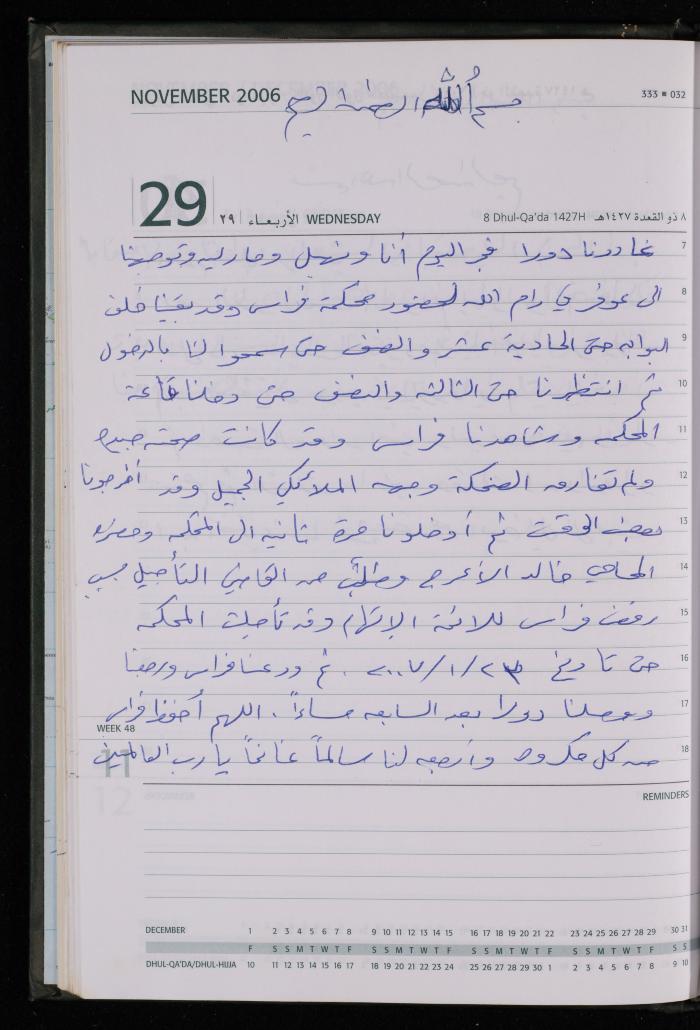 NOVEMBER 2006
333 ■ 032
بسم الله الرحمن الرحيم
29 ٢٩ الأربعاء WEDNESDAY 8 Dhul-Qa'da 1427H ٨ ذو القعدة ١٤٢٧هـ
7 غادرنا دورا فجر اليوم أنا ونهيل وماريه وتوجهنا
8 الى عوفر في رام الله لحضور محكمة فراس وقد بقينا خلف
9 البوابه حتى الحادية عشر والنصف حتى سمحوا لنا بالدخول
10 ثم انتظرنا حتى الثالثه والنصف حتى دخلنا قاعة
11 المحكمه وشاهدنا فراس وقد كانت صحته جيده
12 ولم تفارق الضحكة وجهه الملائكي الجميل وقد أخرجونا
13 بعض الوقت ثم أدخلونا مرة ثانيه الى المحكمه وحضر
14 المحامي خالد الأعرج وطلب من القاضي التأجيل بسبب
15 رفض فراس للائحة الإتهام وقد تأجلت المحكمه
16 حتى تاريخ ٢٠٠٧/١/٢٣ . ثم ودعنا فراس ورجعنا
17 ووصلنا دورا بعد السابعه مساءً . اللهم أحفظ فراس
18 من كل مكروه وأرجعه لنا سالماً غانماً يا رب العالمين
WEEK 48
11
12
REMINDERS
DECEMBER 1 2 3 4 5 6 7 8 9 10 11 12 13 14 15 16 17 18 19 20 21 22 23 24 25 26 27 28 29 30 31
F S S M T W T F S S M T W T F S S M T W T F S S M T W T F S S
DHUL-QA'DA/DHUL-HIJJA 10 11 12 13 14 15 16 17 18 19 20 21 22 23 24 25 26 27 28 29 30 1 2 3 4 5 6 7 8 9 10